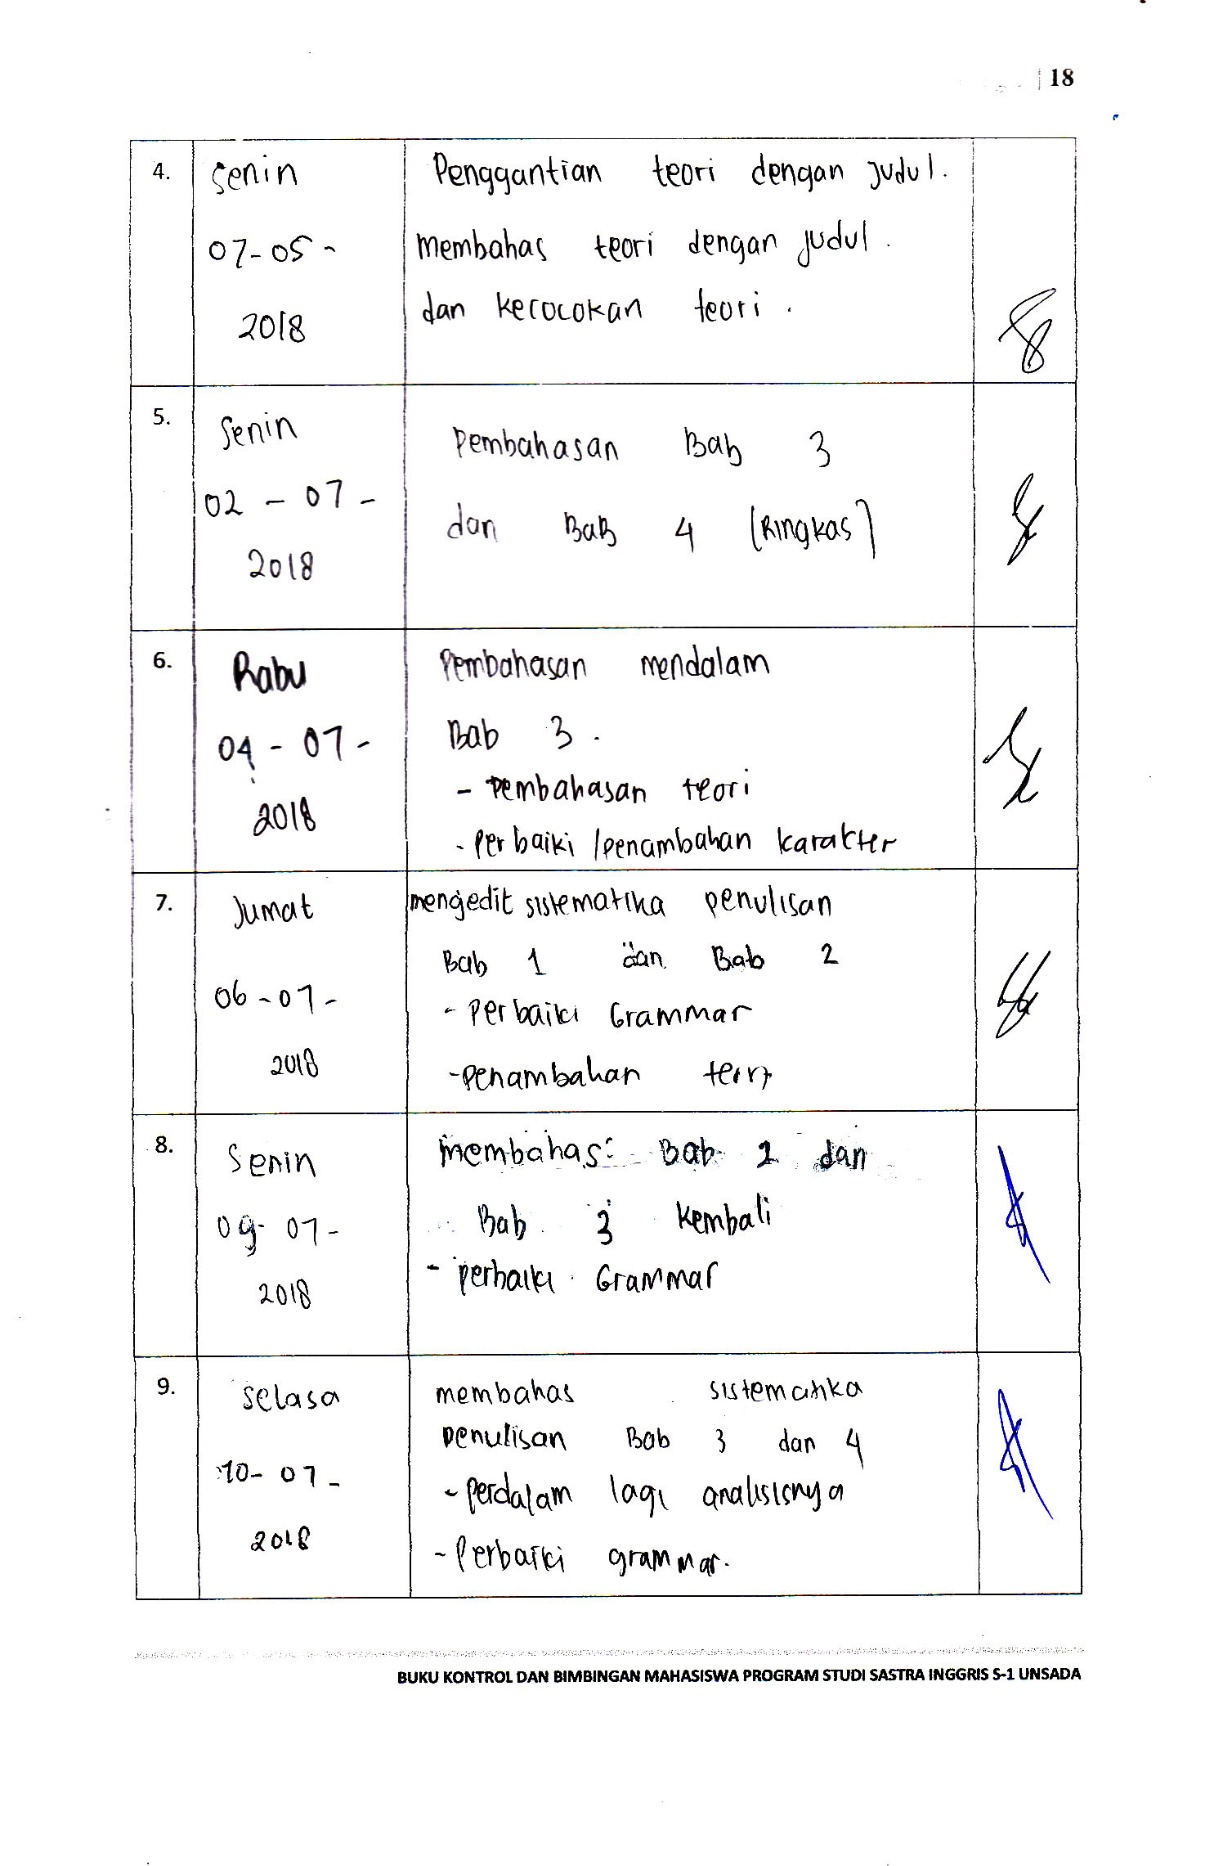 18
4.
Senin
07-05-
2018
Penggantian teori dengan judul.
membahas teori dengan judul.
dan kecocokan teori.
5.
Senin
02 - 07 -
2018
Pembahasan Bab 3
dan Bab 4 (Ringkas)
6.
Rabu
04 - 07 -
2018
Pembahasan mendalam
Bab 3.
- Pembahasan teori
- Perbaiki /penambahan karakter
7.
Jumat
06 - 07 -
2018
mengedit sistematika penulisan
Bab 1 dan Bab 2
- Perbaiki Grammar
- Penambahan
8.
Senin
09- 07 -
2018
membahas: Bab 2 dan
Bab 3 kembali
- Perbaiki Grammar
9.
Selasa
10- 07 -
2018
membahas sistematika
penulisan Bab 3 dan 4
- perdalam lagi analisisnya
- Perbaiki grammar.
BUKU KONTROL DAN BIMBINGAN MAHASISWA PROGRAM STUDI SASTRA INGGRIS S-1 UNSADA